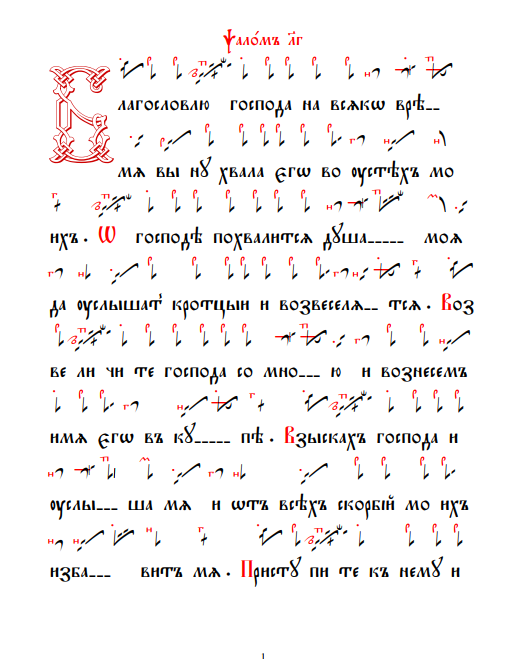 Ѱало́мъ л҃г
Благословлю господа на всѧкѡ врѣ__
мѧ вы нꙋ хвала єгѡ во ѹстѣхъ мо
ихъ. Ѡ господѣ похвалитсѧ дꙋша____ моѧ
да ѹслышат̾ кротцыи и возвеселѧ__ тсѧ. Воз
ве ли чи те господа со мно___ ю и вознесемъ
имѧ єгѡ въ кꙋ_____ пѣ. Взыскахъ господа и
ѹслы___ ша мѧ и ѿтъ всѣхъ скорбїй мо ихъ
изба___ витъ мѧ. Пристꙋ пи те къ немꙋ и
1